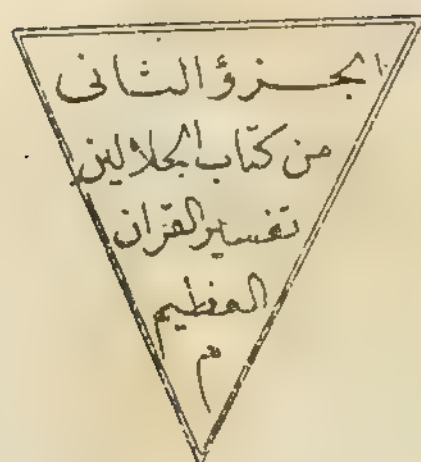 الجزؤ الثانى
من كتاب الجلالين
تفسير القرآن
العظيم
م